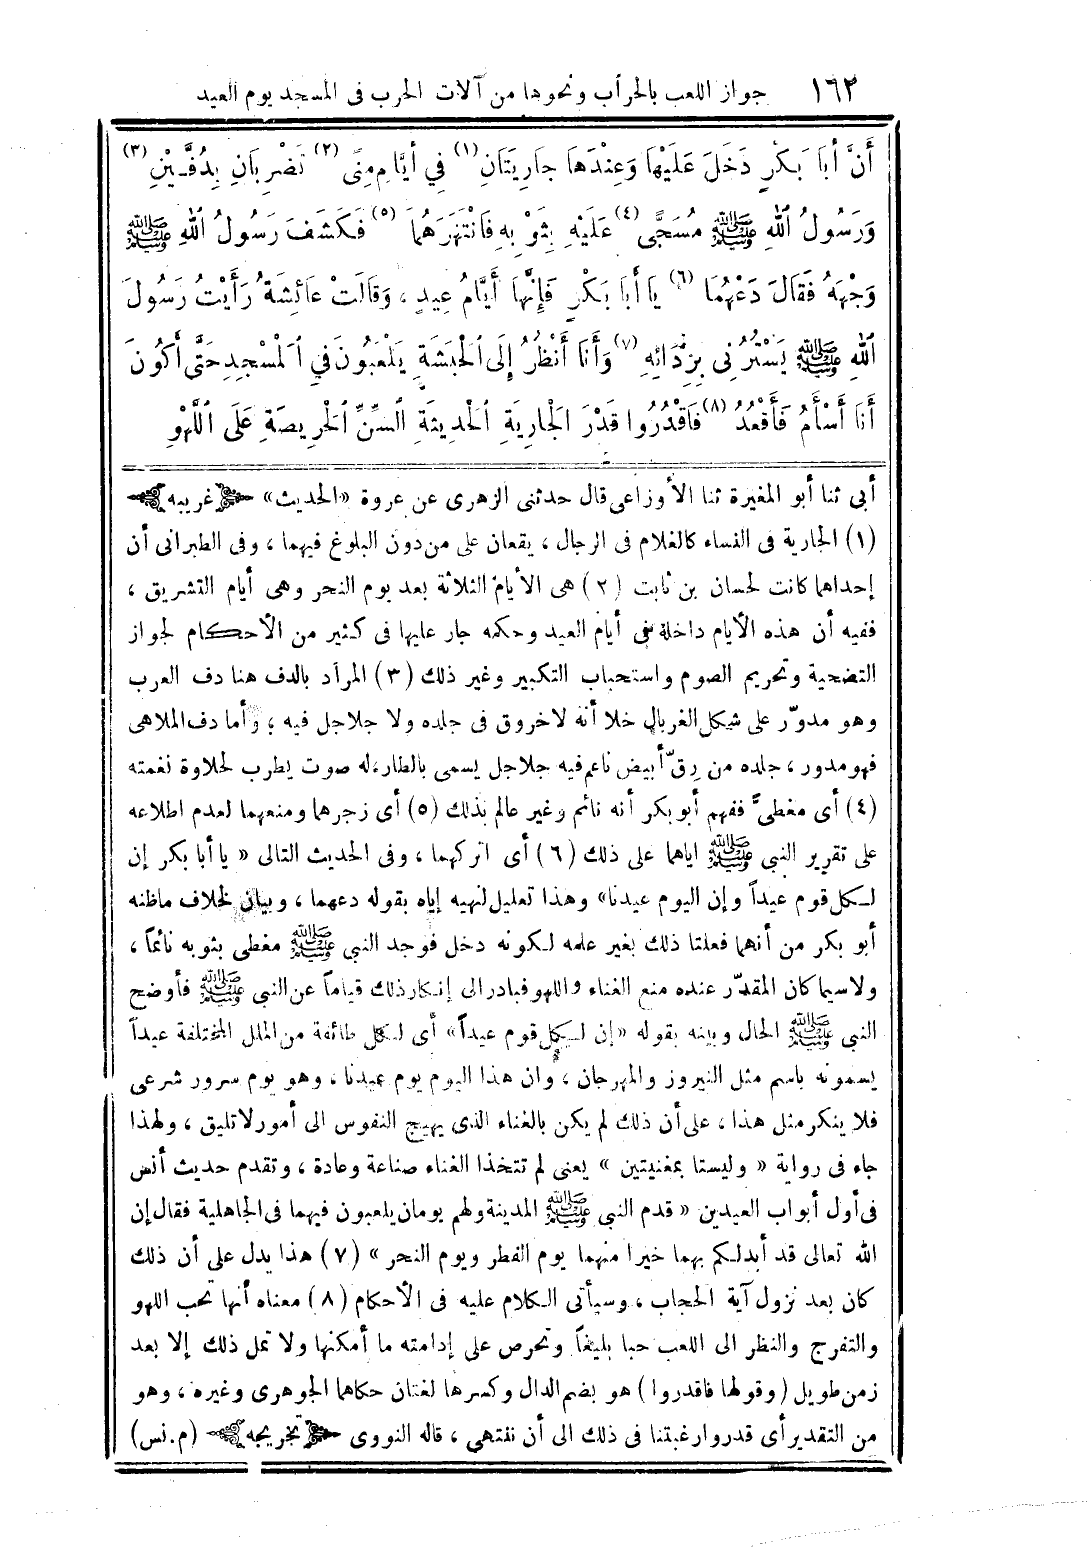 ١٦٢ جواز اللعب بالحراب ونحوها من آلات الحرب فى المسجد يوم العيد
أَنَّ أَبَا بَكْرٍ دَخَلَ عَلَيْهَا وَعِنْدَهَا جَارِيَتَانِ (١) فِي أَيَّامِ مِنًى (٢) تَضْرِبَانِ بِدُفَّيْنِ (٣)
وَرَسُولُ اللهِ ﷺ مُسَجًّى (٤) عَلَيْهِ بِثَوْبِهِ فَانْتَهَرَهُمَا (٥) فَكَشَفَ رَسُولُ اللهِ ﷺ
وَجْهَهُ فَقَالَ دَعْهُمَا (٦) يَا أَبَا بَكْرٍ فَإِنَّهَا أَيَّامُ عِيدٍ ، وَقَالَتْ عَائِشَةُ رَأَيْتُ رَسُولَ
اللهِ ﷺ يَسْتُرُنِى بِرِدَائِهِ (٧) وَأَنَا أَنْظُرُ إِلَى الْحَبَشَةِ يَلْعَبُونَ فِي الْمَسْجِدِ حَتَّى أَكُونَ
أَنَا أَسْأَمُ فَأَقْعُدُ (٨) فَاقْدُرُوا قَدْرَ الْجَارِيَةِ الْحَدِيثَةِ السِّنِّ الْحَرِيصَةِ عَلَى اللَّهْوِ
أبى ثنا أبو المغيرة ثنا الأوزاعى قال حدثنى الزهرى عن عروة «الحديث» غريبه
(١) الجارية فى النساء كالغلام فى الرجال ، يقعان على من دون البلوغ فيهما ، وفى الطبرانى أن
إحداهما كانت لحسان بن ثابت (٢) هى الأيام الثلاثة بعد يوم النحر وهى أيام التشريق ،
ففيه أن هذه الأيام داخلة فى أيام العيد وحكمه جار عليها فى كثير من الأحكام لجواز
التضحية وتحريم الصوم واستحباب التكبير وغير ذلك (٣) المراد بالدف هنا دف العرب
وهو مدوّر على شكل الغربال خلا أنه لاخروق فى جلده ولا جلاجل فيه ؛ وأما دف الملاهى
فهو مدور ، جلده من رقّ أبيض ناعم فيه جلاجل يسمى بالطار، له صوت يطرب لحلاوة نغمته
(٤) أى مغطىً ففهم أبو بكر أنه نائم وغير عالم بذلك (٥) أى زجرهما ومنعهما لعدم اطلاعه
على تقرير النبى ﷺ اياهما على ذلك (٦) أى اتركهما ، وفى الحديث التالى « يا أبا بكر إن
لكل قوم عيداً وإن اليوم عيدنا» وهذا تعليل لنهيه إياه بقوله دعهما ، وبيان لخلاف ماظنه
أبو بكر من أنهما فعلتا ذلك بغير علمه لكونه دخل فوجد النبى ﷺ مغطى بثوبه نائماً ،
ولاسيما كان المقدّر عنده منع الغناء واللهو فبادر الى إنكار ذلك قياماً عن النبى ﷺ فأوضح
النبى ﷺ الحال وبينه بقوله «إن لكل قوم عيداً» أى لكل طائفة من الملل المختلفة عيداً
يسمونه باسم مثل النيروز والمهرجان ، وان هذا اليوم يوم عيدنا ، وهو يوم سرور شرعى
فلا ينكر مثل هذا ، على أن ذلك لم يكن بالغناء الذى يهيج النفوس الى أمور لاتليق ، ولهذا
جاء فى رواية « وليستا بمغنيتين » يعنى لم تتخذا الغناء صناعة وعادة ، وتقدم حديث أنس
فى أول أبواب العيدين « قدم النبى ﷺ المدينة ولهم يومان يلعبون فيهما فى الجاهلية فقال إن
الله تعالى قد أبدلكم بهما خيرا منهما يوم الفطر ويوم النحر » (٧) هذا يدل على أن ذلك
كان بعد نزول آية الحجاب ، وسيأتى الكلام عليه فى الأحكام (٨) معناه أنها تحب اللهو
والتفرج والنظر الى اللعب حبا بليغاً وتحرص على إدامته ما أمكنها ولا تمل ذلك إلا بعد
زمن طويل (وقولها فاقدروا) هو بضم الدال وكسرها لغتان حكاهما الجوهرى وغيره ، وهو
من التقدير أى قدروا رغبتنا فى ذلك الى أن ننتهى ، قاله النووى تخريجه (م . نس)